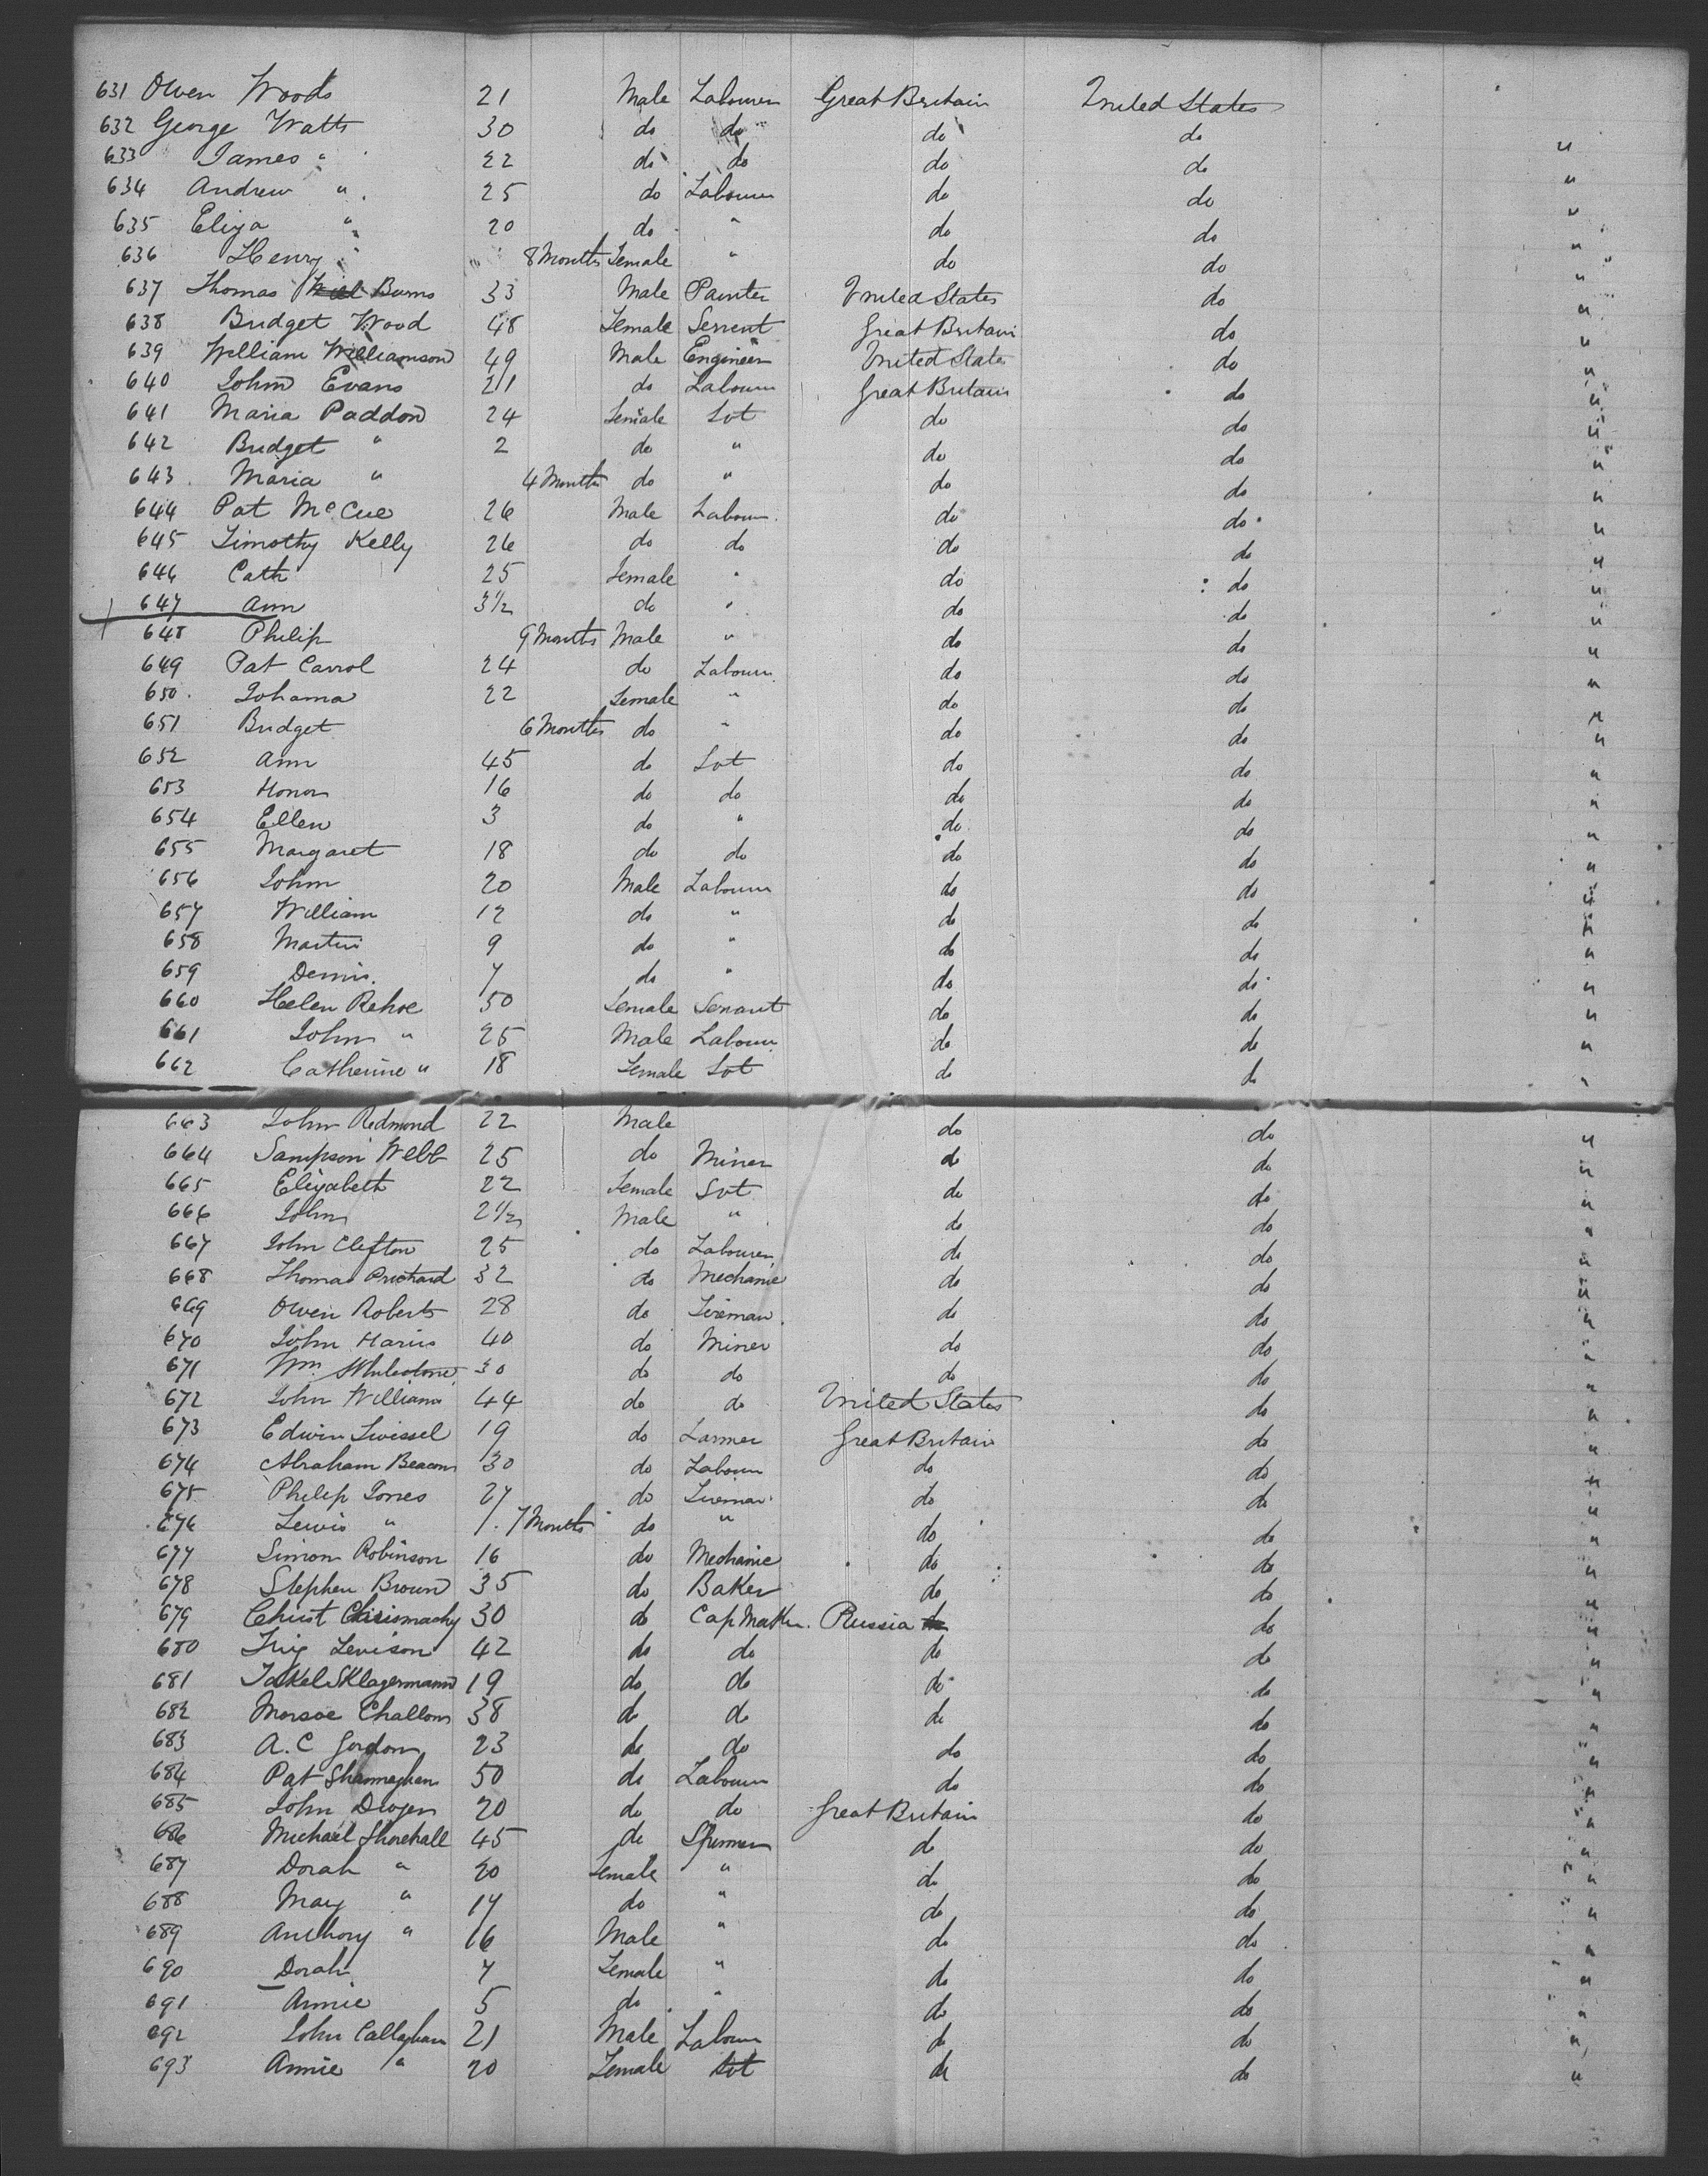 631 Owen Woods 21 Male Labourer Great Britain United States
632 George Watts 30 do do do do "
633 James " 22 do do do do "
634 Andrew " 25 do Labourer do do "
635 Eliza " 20 do " do do "
636 Henry " 8 Months Female " do do "
637 Thomas Burns 33 Male Painter United States do "
638 Bridget Wood 48 Female Servent Great Britain do "
639 William Williamson 49 Male Engineer United States do "
640 John Evans 21 do Labourer Great Britain do "
641 Maria Paddon 24 Female Svt do do "
642 Bridget " 2 do " do do "
643 Maria " 4 Months do " do do "
644 Pat McCue 26 Male Labour do do "
645 Timothy Kelly 26 do do do do "
646 Cath 25 Female " do do "
647 Ann 3½ do " do do "
648 Philip 9 Months Male " do do "
649 Pat Carrol 24 do Labourer do do "
650 Johanna 22 Female " do do "
651 Bridget 6 Months do " do do "
652 Ann 45 do Svt do do "
653 Honor 16 do do do do "
654 Ellen 3 do " do do "
655 Margaret 18 do do do do "
656 John 20 Male Labourer do do "
657 William 12 do " do do "
658 Martin 9 do " do do "
659 Dennis 7 do " do do "
660 Helen Kehoe 50 Female Servant do do "
661 John " 25 Male Labourer do do "
662 Catherine " 18 Female Svt do do "
663 John Redmond 22 Male do do "
664 Sampson Webb 25 do Miner do do "
665 Elizabeth 22 Female Svt do do "
666 John 2½ Male " do do "
667 John Clifton 25 do Labourer do do "
668 Thomas Prichard 32 do Mechanic do do "
669 Owen Roberts 28 do Fireman do do "
670 John Harris 40 do Miner do do "
671 Wm. Whilestone 30 do do do do "
672 John Williams 44 do do United States do "
673 Edwin Twissel 19 do Farmer Great Britain do "
674 Abraham Beacon 30 do Labour do do "
675 Philip Jones 27 do Fireman do do "
676 Lewis " 1. 7 Months do " do do "
677 Simon Robinson 16 do Mechanic do do "
678 Stephen Brown 35 do Baker do do "
679 Christ 30 do Cap Maker. Russia do "
680 Levison 42 do do do do "
681 Jakel Sklagermann 19 do do do do "
682 Challons 38 do do do do "
683 A. C Gordon 23 do do do do "
684 Pat Shannaghan 50 do Labourer do do "
685 John 20 do do Great Britain do "
686 Michael 45 do do do "
687 Dorah " 20 Female " do do "
688 Mary " 17 do " do do "
689 Anthony " 16 Male " do do "
690 Dorah 7 Female " do do "
691 Annie 5 do " do do "
692 John Callaghan 21 Male Labour do do "
693 Annie " 20 Female Svt do do "